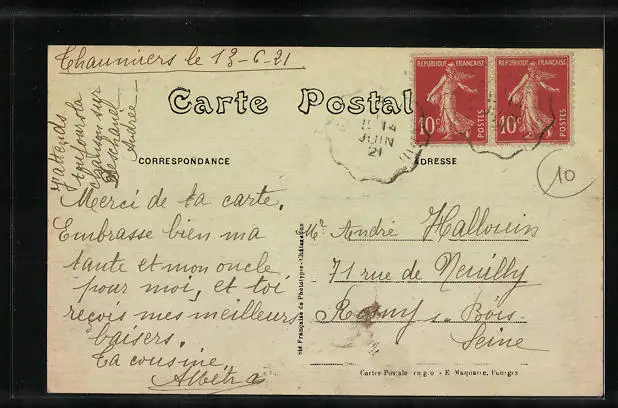 Chaumiers le 13-6-21
J'attends
toujours la
chanson sur
Deschanel
Andrée
Carte Postale
CORRESPONDANCE
ADRESSE
REPUBLIQUE FRANÇAISE
10c
POSTES
REPUBLIQUE FRANÇAISE
10c
POSTES
14
JUIN
21
10
Merci de ta carte.
Embrasse bien ma
tante et mon oncle
pour moi, et toi
reçois mes meilleurs
baisers.
Ta cousine,
Mr André Hallouin
71 rue de Neuilly
Rosny s. Bois
Seine
Sté Française de Phototypie - Châteaudun
Cartes Postale en gros - E. Maquaire, Fourges